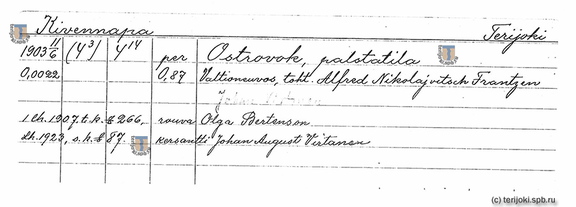 Kivennapa Terijoki
1903 11/6 (4³) 4¹⁴ per Ostrovok, palstatila
0,0022 0,87 Valtioneuvos, toht. Alfred Nikolajvitsch Frantzen
1 lh. 1907. t. k. § 266, rouva Olga Bertenson
Lh. 1923, s. k. § 87. kersantti Johan August Virtanen
(c) terijoki.spb.ru